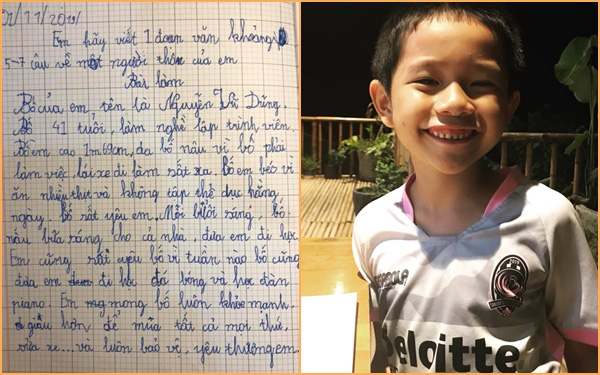 02/11/2019/
Em hãy viết 1 đoạn văn khoảng
5-7 câu về một người thân của em
Bài làm
Bố của em tên là Nguyễn Vũ Dũng.
Bố 41 tuổi, làm nghề lập trình viên.
Bố em cao 1m69cm, da bố nâu vì bố phải
làm việc, lái xe đi làm rất xa. bố em béo vì
ăn nhiều thứ và không tập thể dục hằng
ngày. bố rất yêu em. Mỗi buổi ráng, bố
nấu bữa ráng cho cả nhà, đưa em đi học
Em cũng rất yêu bố vì tuần nào bố cũng
đưa em đi học đá bóng và học đàn
piano. Em mong bố luôn khỏe mạnh,
giàu hơn để mua tất cả mọi thứ,
rửa xe... và luôn bảo vệ, yêu thương em.
Deloitte